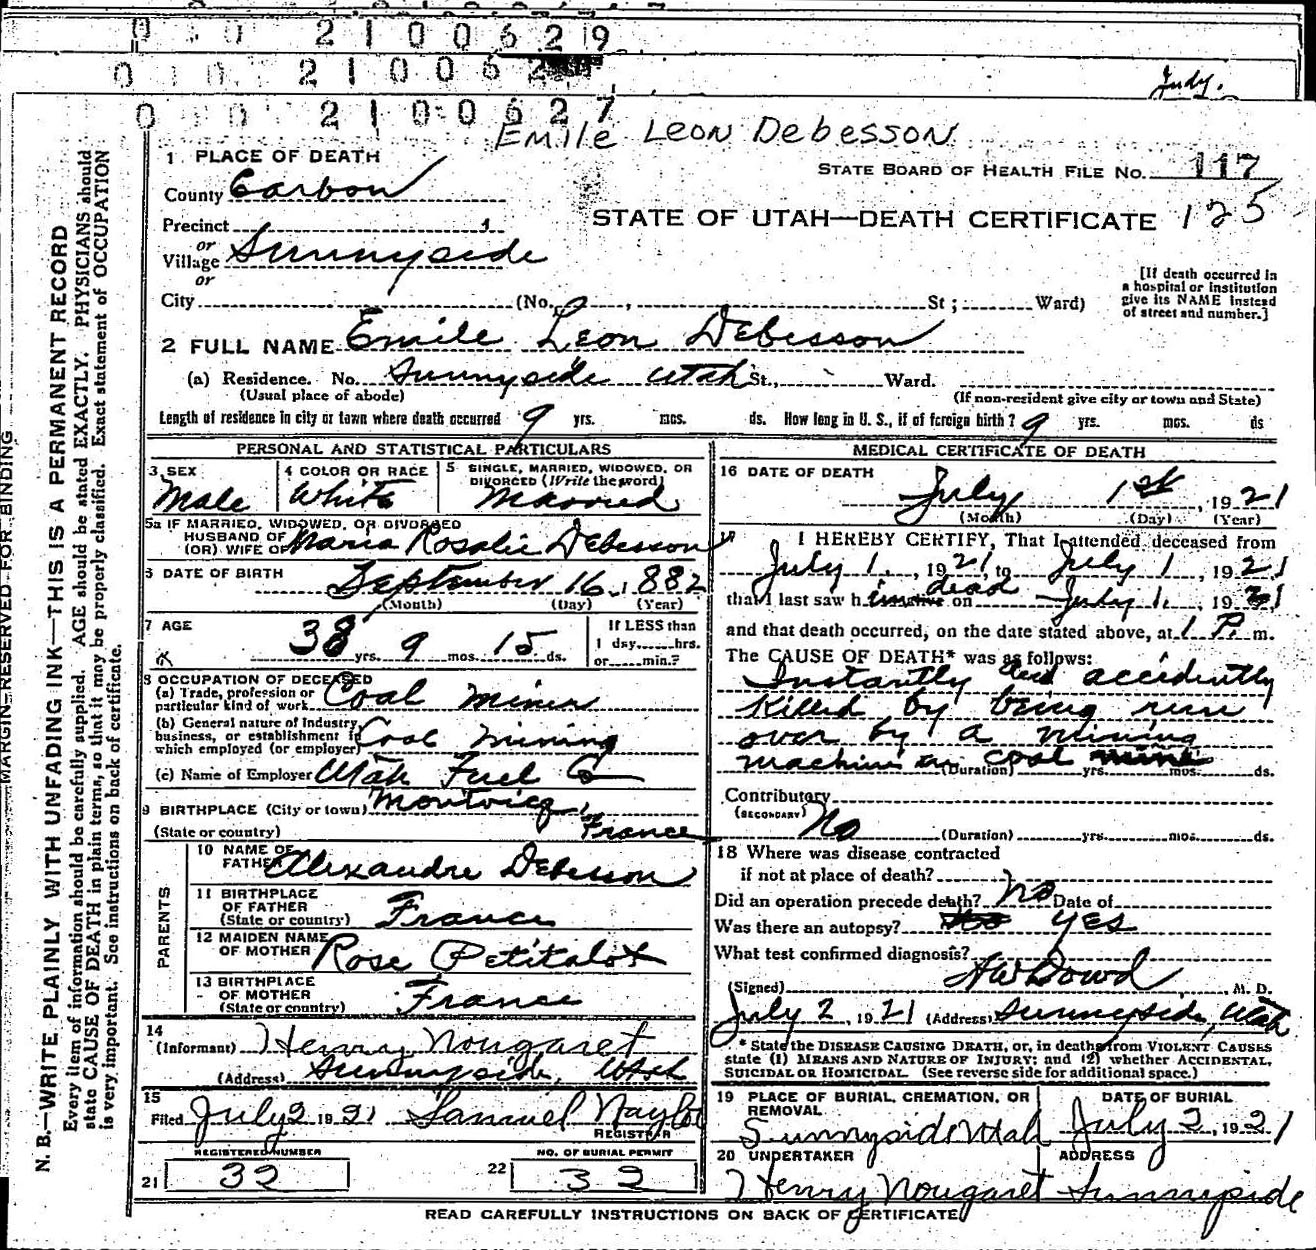 0 0 0 2 1 0 0 6 2 9
0 0 0 2 1 0 0 6 2
Judy.
0 0 2 1 0 0 6 2 7
Emile Leon Debesson
1 PLACE OF DEATH
STATE BOARD OF HEALTH FILE NO. 117
County Carbon
STATE OF UTAH—DEATH CERTIFICATE 125
Precinct
or
Village Sunnyside
or
City (No. , St ; Ward)
[If death occurred in a hospital or institution give its NAME instead of street and number.]
2 FULL NAME Emile Leon Debesson
(a) Residence. No. Sunnyside Utah St., Ward.
(Usual place of abode) (If non-resident give city or town and State)
Length of residence in city or town where death occurred 9 yrs. mos. ds. How long in U. S., if of foreign birth? 9 yrs. mos. ds
PERSONAL AND STATISTICAL PARTICULARS
3 SEX
Male
4 COLOR OR RACE
White
5 SINGLE, MARRIED, WIDOWED, OR DIVORCED (Write the word)
Married
5a IF MARRIED, WIDOWED, OR DIVORCED
HUSBAND OF
(OR) WIFE OF Maria Rosalie Debesson
6 DATE OF BIRTH September 16, 1882
(Month) (Day) (Year)
7 AGE
38 yrs. 9 mos. 15 ds.
If LESS than
1 day hrs.
or min.?
8 OCCUPATION OF DECEASED
(a) Trade, profession or
particular kind of work Coal Miner
(b) General nature of industry,
business, or establishment in
which employed (or employer) Coal Mining
(c) Name of Employer Utah Fuel Co
9 BIRTHPLACE (City or town) Montvicq,
(State or country) France
PARENTS
10 NAME OF
FATHER Alexandre Debesson
11 BIRTHPLACE
OF FATHER
(State or country) France
12 MAIDEN NAME
OF MOTHER Rose Petitalot
13 BIRTHPLACE
OF MOTHER
(State or country) France
14
(Informant) Henry Nougaret
(Address) Sunnyside, Utah
15
Filed July 2 1921 Samuel Naylor
REGISTRAR
REGISTERED NUMBER
21 32
NO. OF BURIAL PERMIT
22 32
MEDICAL CERTIFICATE OF DEATH
16 DATE OF DEATH
July 1st, 1921
(Month) (Day) (Year)
17 I HEREBY CERTIFY, That I attended deceased from
July 1, 1921, to July 1, 1921
that I last saw him alive dead on July 1, 1921
and that death occurred, on the date stated above, at 1 P. m.
The CAUSE OF DEATH* was as follows:
Instantly and accidently
killed by being run
over by a mining
machine in coal mine
(Duration) yrs. mos. ds.
Contributory
(SECONDARY) No
(Duration) yrs. mos. ds.
18 Where was disease contracted
if not at place of death?
Did an operation precede death? No Date of
Was there an autopsy? No yes
What test confirmed diagnosis?
(Signed) AW Dowd, M. D.
July 2, 1921 (Address) Sunnyside, Utah
* State the DISEASE CAUSING DEATH, or, in deaths from VIOLENT CAUSES
state (1) MEANS AND NATURE OF INJURY; and (2) whether ACCIDENTAL,
SUICIDAL OR HOMICIDAL. (See reverse side for additional space.)
19 PLACE OF BURIAL, CREMATION, OR
REMOVAL
Sunnyside Utah
DATE OF BURIAL
July 2, 1921
20 UNDERTAKER
Henry Nougaret
ADDRESS
Sunnyside
READ CAREFULLY INSTRUCTIONS ON BACK OF CERTIFICATE
MARGIN RESERVED FOR BINDING
N. B.—WRITE PLAINLY WITH UNFADING INK—THIS IS A PERMANENT RECORD
Every item of information should be carefully supplied. AGE should be stated EXACTLY. PHYSICIANS should
state CAUSE OF DEATH in plain terms, so that it may be properly classified. Exact statement of OCCUPATION
is very important. See instructions on back of certificate.